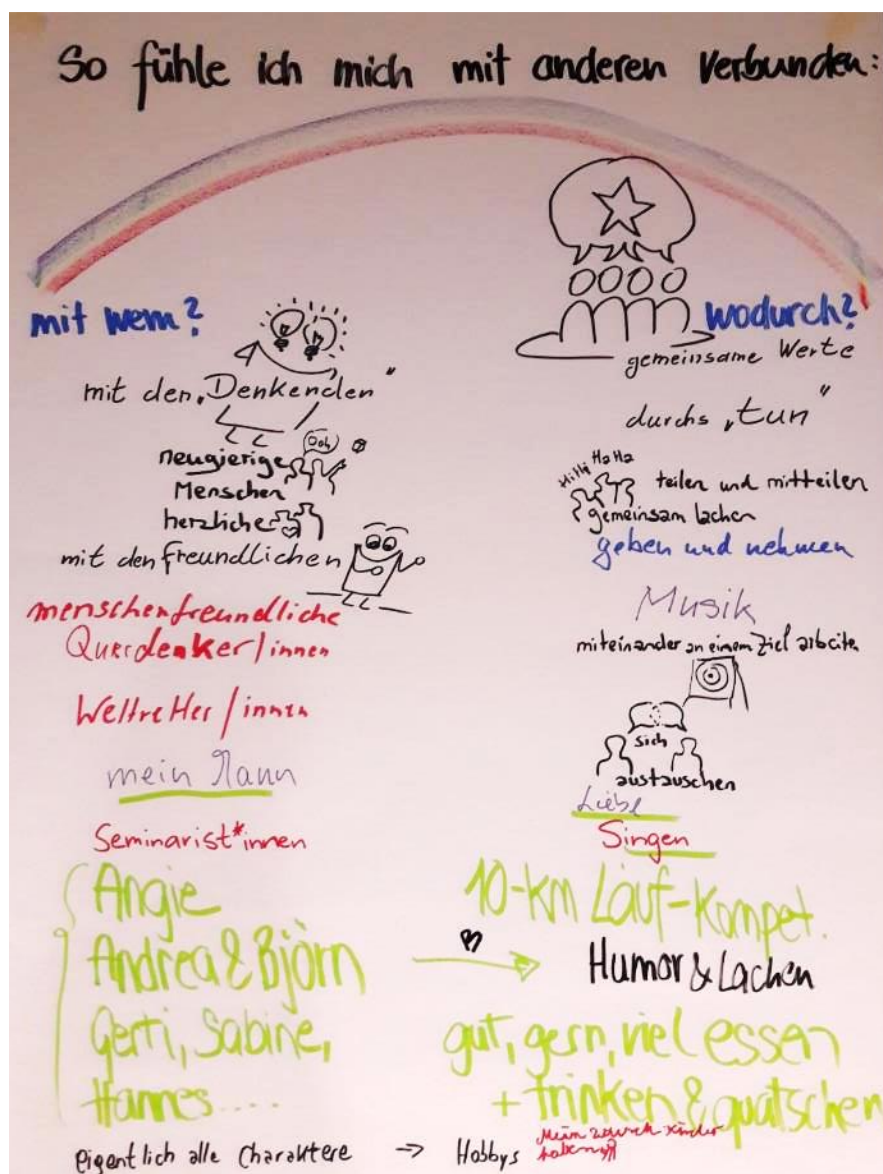 So fühle ich mich mit anderen verbunden:
mit wem?
mit den „Denkenden"
neugierige
Ooh
Menschen
herzliche
mit den freundlichen
menschenfreundliche
Querdenker/innen
Weltretter/innen
mein Mann
Seminarist*innen
Angie
Andrea & Björn
Gerti, Sabine,
Hannes....
eigentlich alle Charaktere → Hobbys
wodurch?
gemeinsame Werte
durchs „tun"
HiHi HaHa
teilen und mitteilen
gemeinsam lachen
geben und nehmen
Musik
miteinander an einem Ziel arbeiten
sich
austauschen
Liebe
Singen
10-km Lauf-Kompet.
Humor & Lachen
gut, gern, viel essen
+ trinken & quatschen